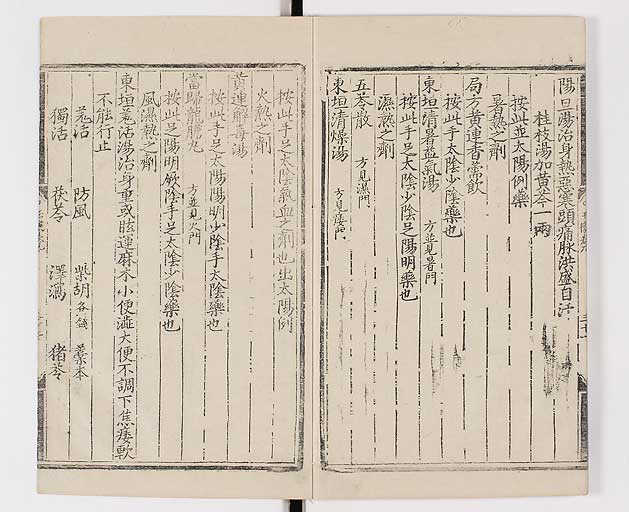 陽旦湯治身熱惡寒頭痛脉洪盛自汗
桂枝湯加黄芩一兩
按此並太陽例藥
暑熱之劑
局方黄連香薷飲
按此手太陰少陰藥也
東垣清暑益氣湯 方並見暑門
按此手足太陰少陰足陽明藥也
濕熱之劑
五苓散 方見濕門
東垣清燥湯 方見痿門
按此手足太陰氣血之劑也出太陽例
火熱之劑
黄連解毒湯
按此手足太陽陽明少陰手太陰藥也
當歸龍膽丸 方並見火門
按此足陽明厥陰手足太陰少陰藥也
風濕熱之劑
東垣羗活湯治身重或眩運麻木小便澁大便不調下焦痿軟
不能行止
羗活 防風 柴胡各錢 藁本
獨活 茯苓 澤瀉 猪苓